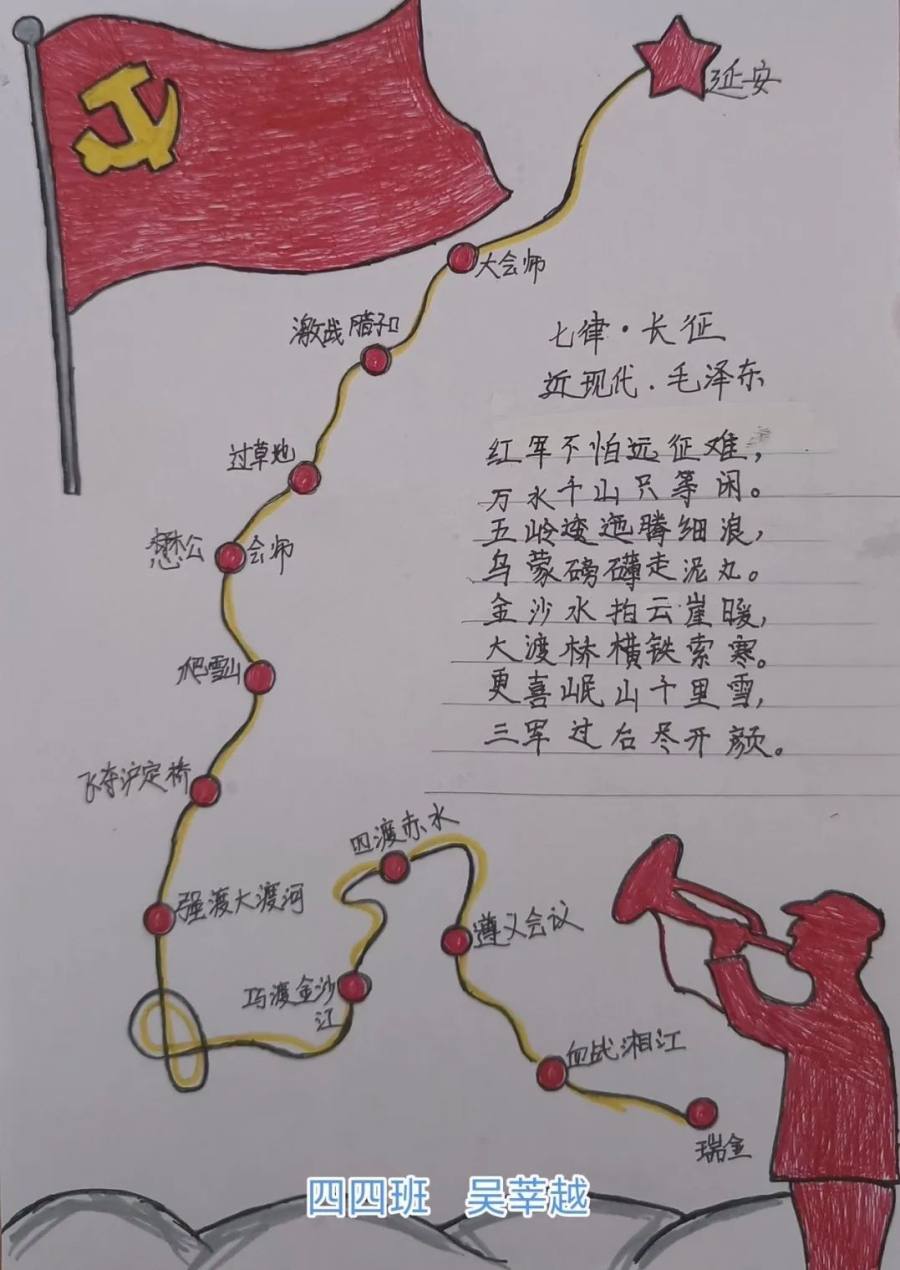 延安
大会师
激战腊子口
过草地
懋公 会师
爬雪山
飞夺沪定桥
强渡大渡河
四渡赤水
遵义会议
巧渡金沙
江
血战湘江
瑞金
七律·长征
近现代.毛泽东
红军不怕远征难，
万水千山只等闲。
五岭逶迤腾细浪，
乌蒙磅礴走泥丸。
金沙水拍云崖暖，
大渡桥横铁索寒。
更喜岷山千里雪，
三军过后尽开颜。
四四班 吴莘越